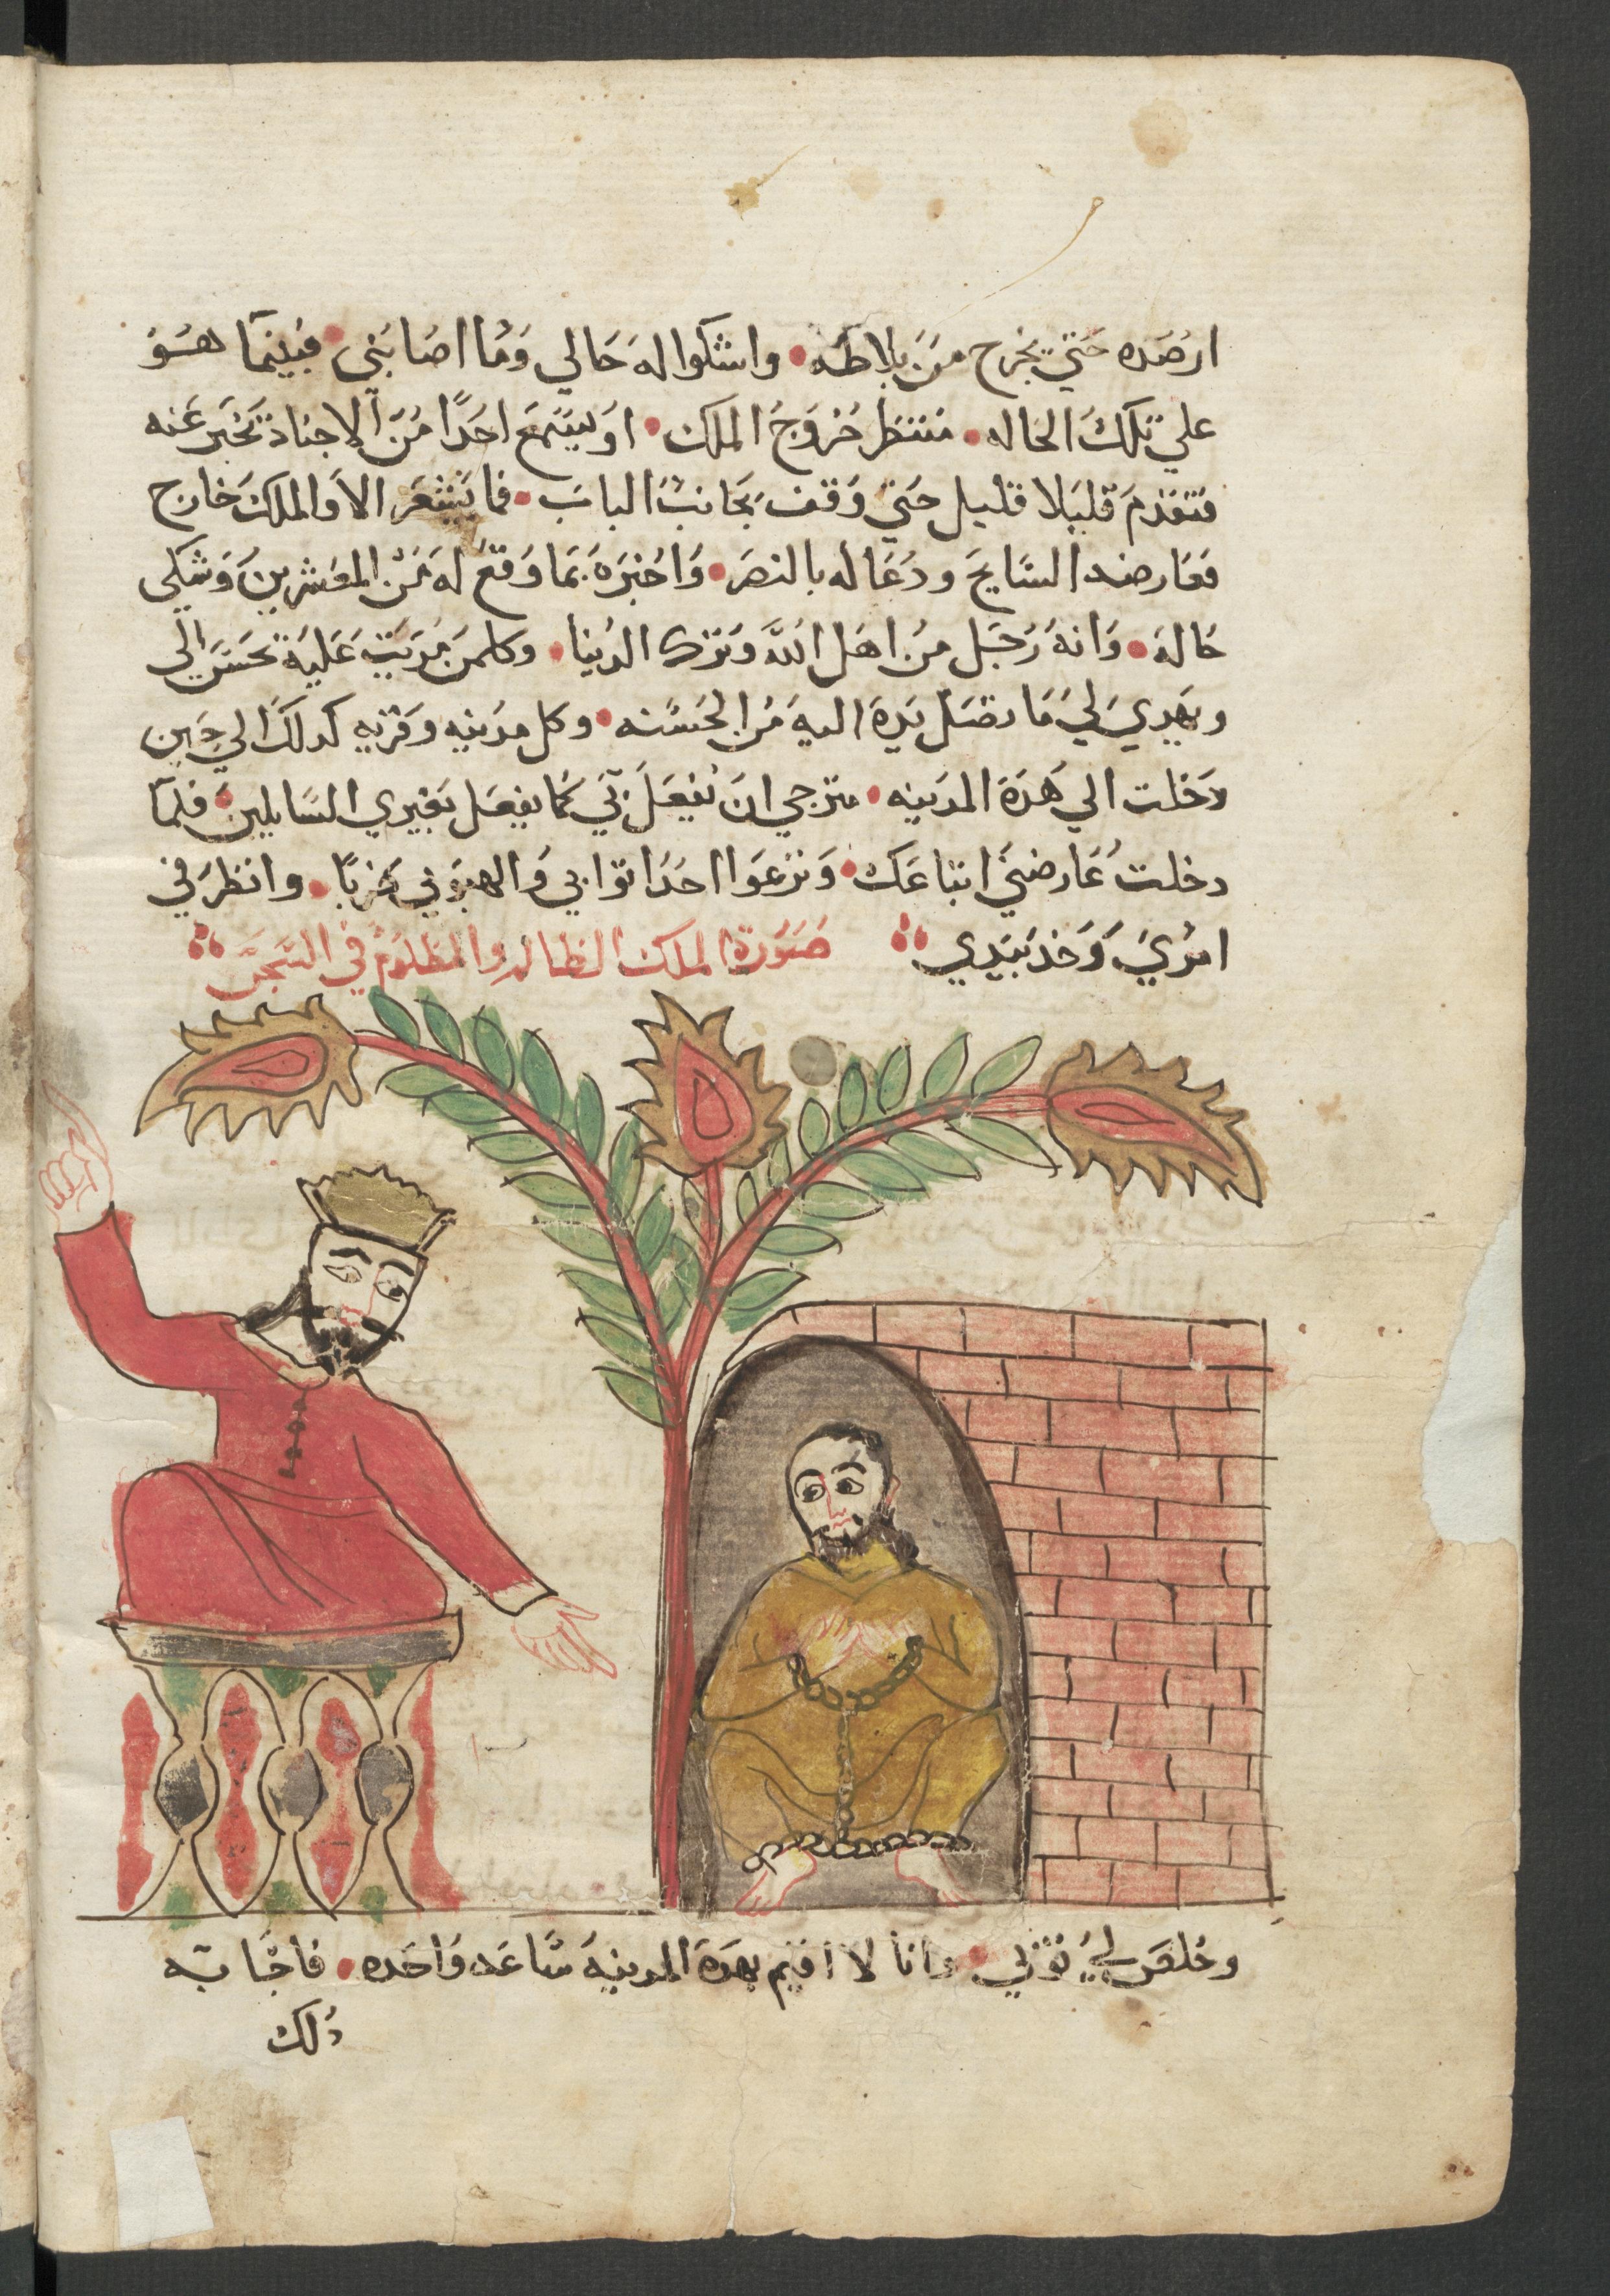 ارصده حتي يخرج من بلاطه • واشكوا له حالي وما اصابني • فبينما هو
علي تلك الحاله • منتظر خروج الملك • او يسمع احدا من الاجناد تخبر عنه
فتقدم قليلا قليل حتي وقف بجانب الباب • فما يشعر الا والملك خارج
فعارضه السايح ودعا له بالنصر • واخبره بما وقع له من المعشرين وشكي
حاله • وانه رجل من اهل الله وترك الدنيا • وكلمن مريت عليه تحسن الي
ويهدي لي ما تصل يده اليه من الحسنه • وكل مدينه وقريه كدلك الي حين
دخلت الي هده المدينه • مترجي ان يفعل بي كما يفعل بغيري السايلين • فلما
دخلت عارضني اتباعك • ونزعوا احدا توابي والهبوني ضربا • وانظر في
امري وخد بيدي صورة الملك الظالم والمظلوم في السجن
وخلص لي توبي • وانا لا اقيم بهده المدينه ساعه واحده • فاجابه
دلك